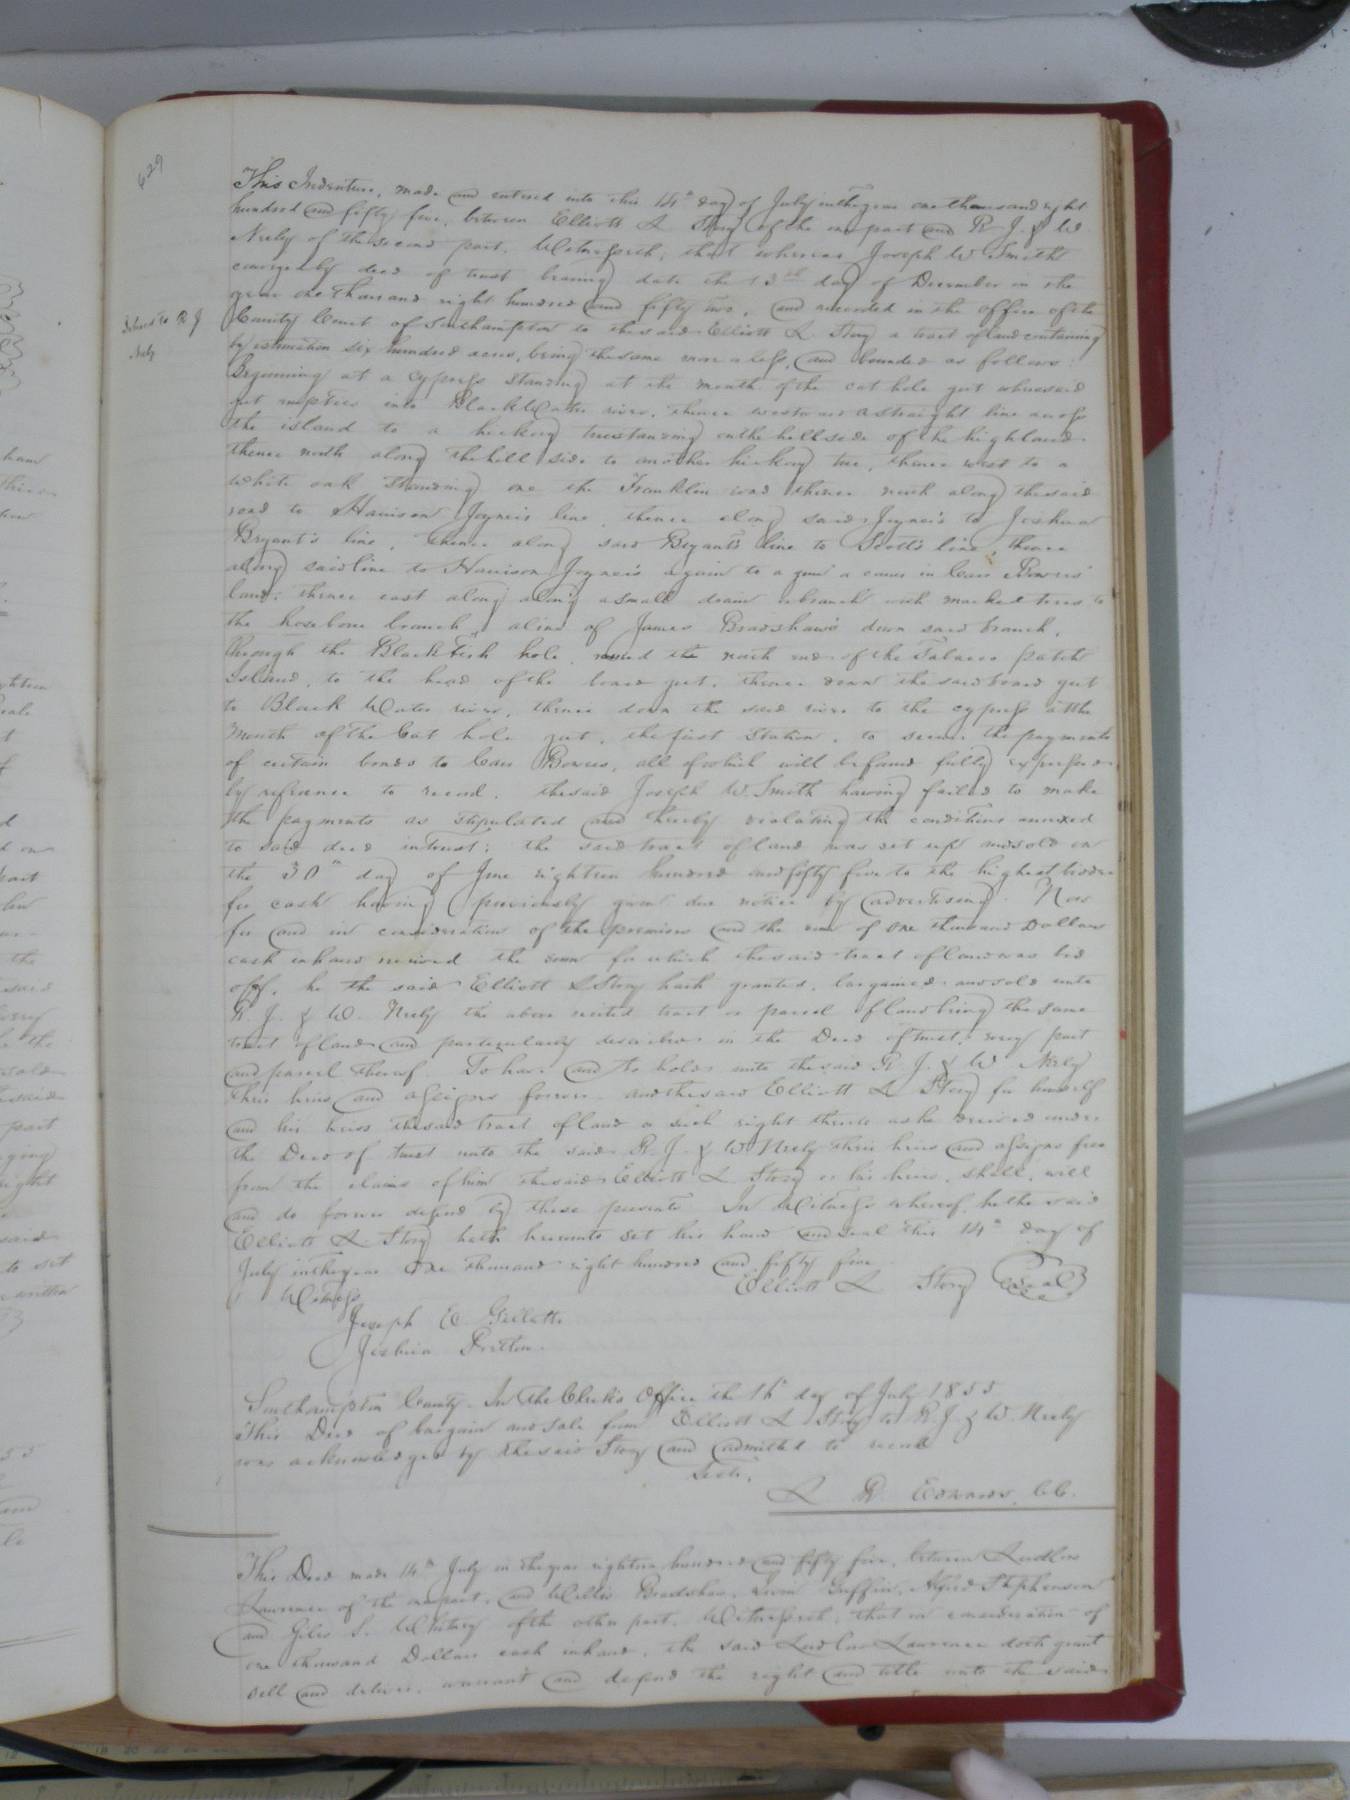 629
This Indenture, made and entered into this 14th day of July in the year one thousand eight
hundred and fifty five, between Elliott L Story of the one part and R. J. & W.
Neely of the second part, Witnesseth; that whereas Joseph W. Smith
conveyed by deed of trust bearing date the 13th day of December in the
year one thousand eight hundred and fifty two, and recorded in the office of the
County Court of Southampton to the said Elliott L. Story a tract of land containing
by estimation six hundred acres, being the same more or less, and bounded as follows:
Beginning at a cypress standing at the mouth of the cat hole gut where said
gut empties into BlackWater river, thence westward a straight line across
the island to a hickory tree standing on the hill side of the highland
thence north along the hill side to another hickory tree, thence west to a
white oak standing one the Franklin road thence north along the said
road to Harrison Joyner's line, thence along said Joyner's to Joshua
Bryant's line, thence along said Bryant's line to Scott's line, thence
along said line to Harrison Joyner's again to a gum a corner in Carr Bowers'
land; thence east along along a small drain or branch with marked trees to
the horsebone branch, a line of James Bradshaw's down said branch,
through the BlackFish hole, round the north end of the Tobacco patch
Island, to the head of the board gut, thence down the said board gut
to Black Water river, thence down the said river to the cypress at the
mouth of the Cat hole gut, the first station, to secure the payments
of certain bonds to Carr Bowers, all of which will be found fully expressed
by refrence to record. the said Joseph W. Smith having failed to make
the payments as stipulated and thereby violating the conditions annexed
to said deed in trust; the said tract of land was set up and sold on
the 30th day of June eighteen hundred and fifty five to the highest bidder
for cash having previously given due notice by advertising. Now
for and in consideration of the premises and the sum of one thousand Dollars
cash in hand received the sum for which the said tract of land was bid
off, he the said Elliott L Story hath granted, bargained and sold unto
R. J. & W. Neely the above recited tract or parcel of land being the same
tract of land and particularly described in the Deed of trust, every part
and parcel thereof. To have and to hold unto the said R. J. & W. Neely
their heirs and assigns forever. and the said Elliott L Story for himself
and his heirs the said tract of land or such right thereto as he derived under
the Deed of trust unto the said R. J. & W Neely their heirs and assigns free
from the claims of him the said Elliott L Story or his heirs, shall, will
and do forever defend by these presents In Witness whereof, he the said
Elliott L. Story hath hereunto set his hand and seal this 14th day of
July in the year One thousand eight hundred and fifty five
Elliott L Story Seal
Witness
Joseph E Gillette
Joshua Pretlow.
Southampton County. In the Clerk's Office the 16th day of July 1855
This Deed of bargain and sale from Elliott L Story to R. J. & W. Neely
was acknowledged by the said Story and admitted to record
Teste,
L R Edwards, CC.
This Deed made 14th July in the year eighteen hundred and fifty five, between Ludlow
Lawrence of the one part, and Willis Bradshaw, Griffin, Alfred Stephenson
and Giles S. Whitney of the other part. Witnesseth, that in consideration of
one thousand Dollars cash in hand, the said Ludlow Lawrence doth grant
sell and deliver, warrant and defend the right and title unto the said